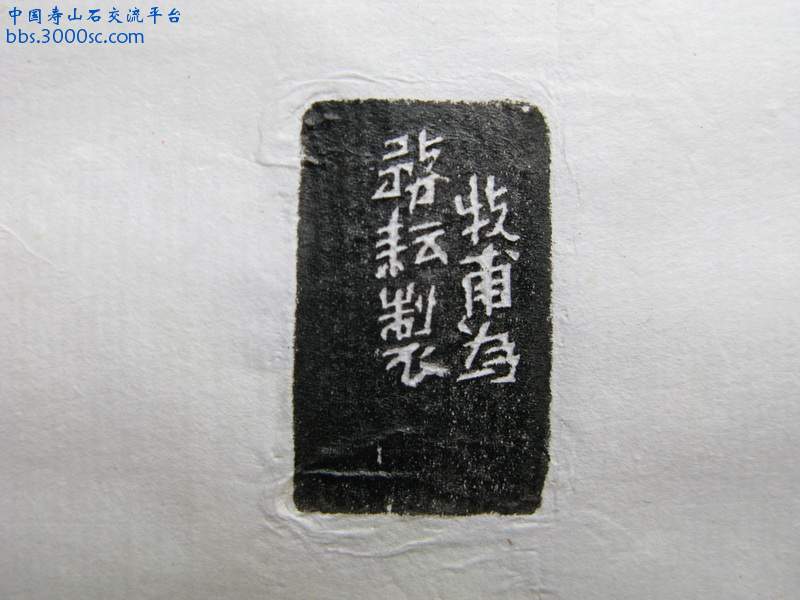 中国寿山石交流平台
bbs.3000sc.com
牧甫為
務耘製